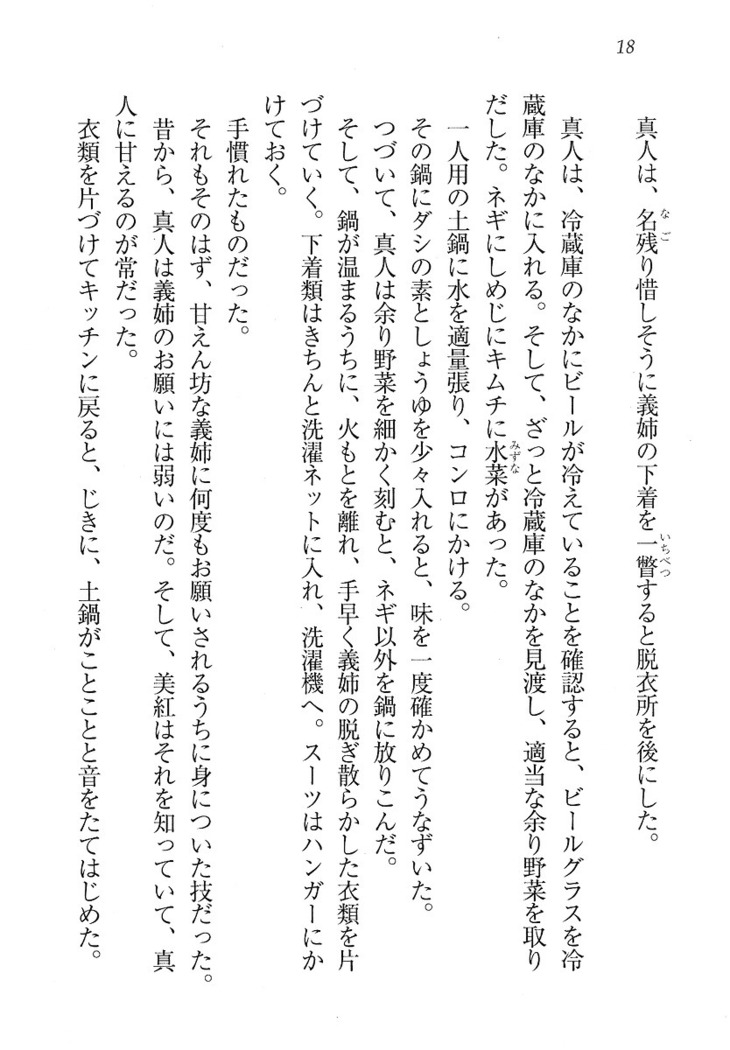 18
真人は、名残り惜しそうに義姉の下着を一瞥すると脱衣所を後にした。
真人は、冷蔵庫のなかにビールが冷えていることを確認すると、ビールグラスを冷
蔵庫のなかに入れる。そして、ざっと冷蔵庫のなかを見渡し、適当な余り野菜を取り
だした。ネギにしめじにキムチに水菜があった。
一人用の土鍋に水を適量張り、コンロにかける。
その鍋にダシの素としょうゆを少々入れると、味を一度確かめてうなずいた。
つづいて、真人は余り野菜を細かく刻むと、ネギ以外を鍋に放りこんだ。
そして、鍋が温まるうちに、火もとを離れ、手早く義姉の脱ぎ散らかした衣類を片
づけていく。下着類はきちんと洗濯ネットに入れ、洗濯機へ。スーツはハンガーにか
けておく。
手慣れたものだった。
それもそのはず、甘えん坊な義姉に何度もお願いされるうちに身についた技だった。
昔から、真人は義姉のお願いには弱いのだ。そして、美紅はそれを知っていて、真
人に甘えるのが常だった。
衣類を片づけてキッチンに戻ると、じきに、土鍋がことことと音をたてはじめた。